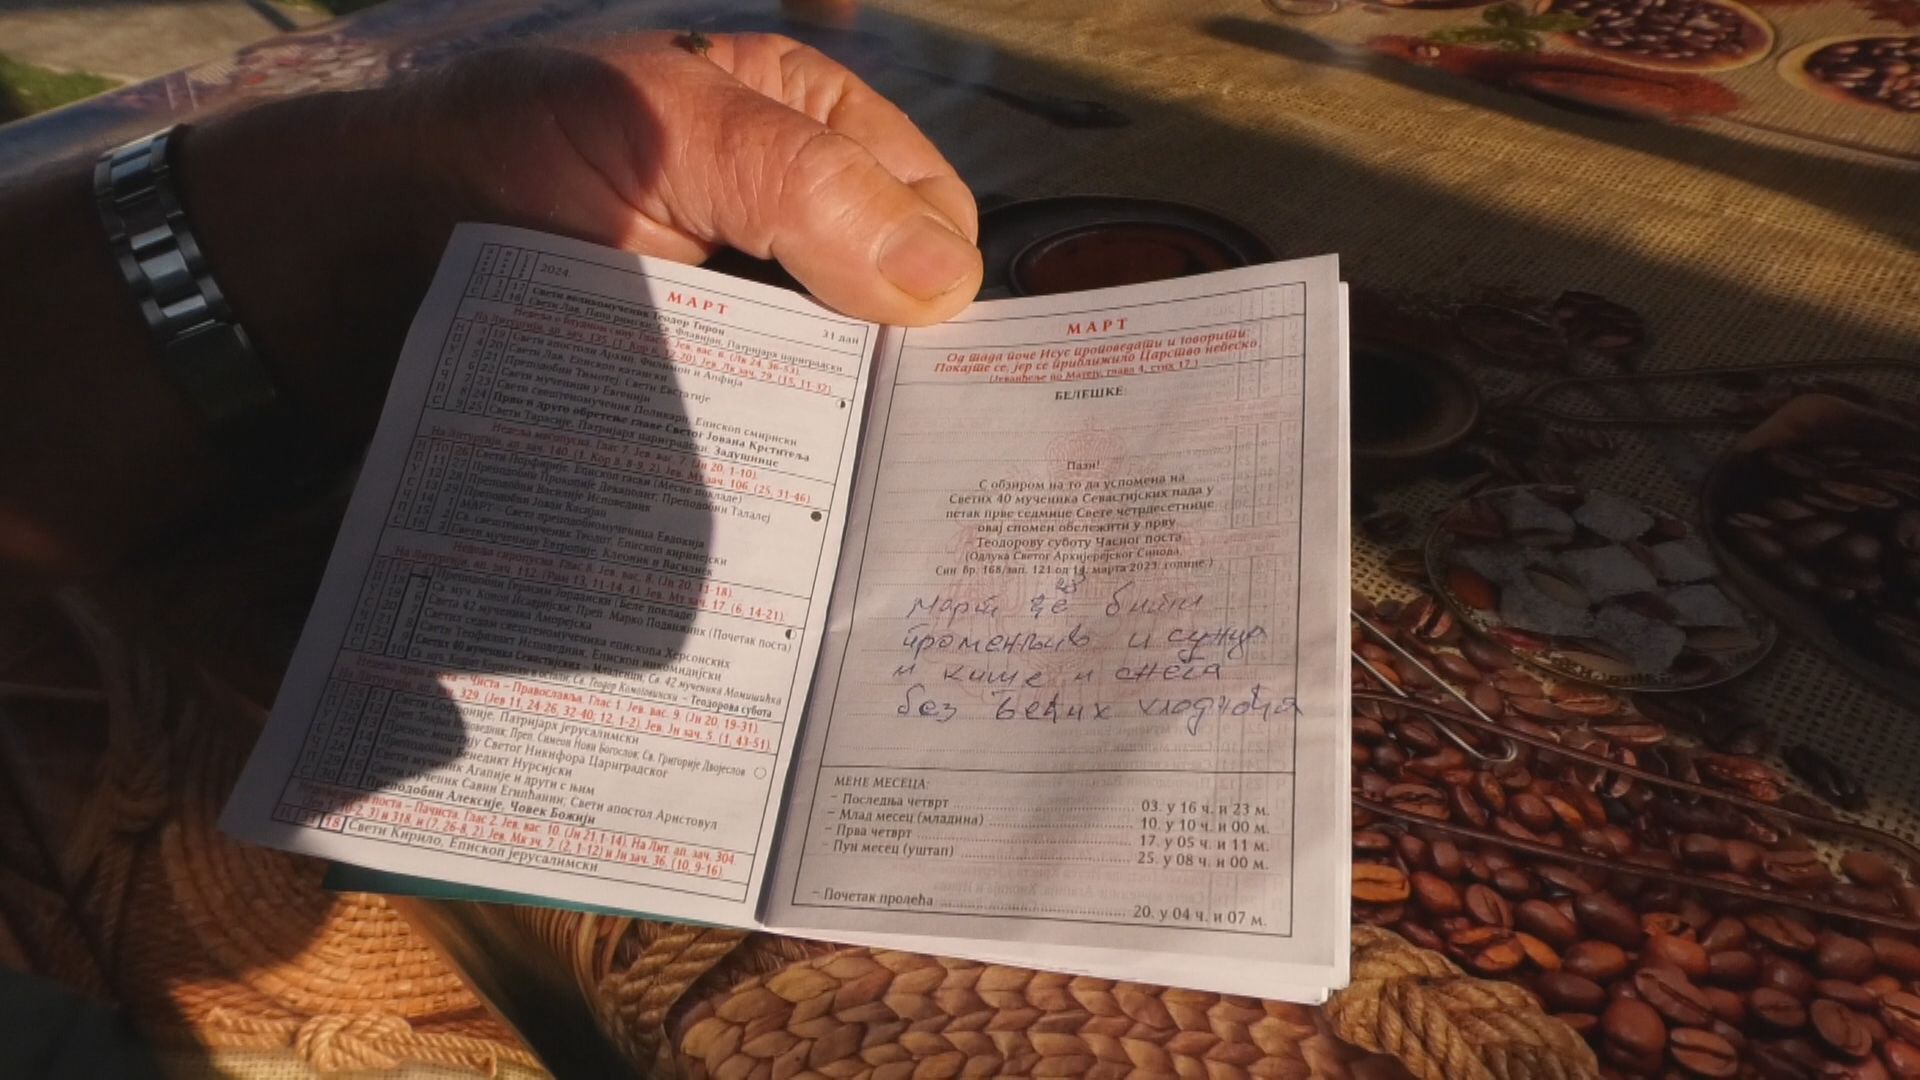 2024.
МАРТ
31 дан
17 Свети великомученик Теодор Тирон
18 Свети Лав, Папа римски; Св. Флавијан, Патријарх цариградски
3 19 Свети апостоли Архип, Филимон и Апфија
4 20 Свети Лав, Епископ катански
5 21 Преподобни Тимотеј; Свети Евстатије
6 22 Свети мученици у Евгенији
7 23 Свети свештеномученик Поликарп, Епископ смирнски
8 24 Прво и друго обретење главе Светог Јована Крститеља
9 25 Свети Тарасије, Патријарх цариградски. Задушнице
Недеља месопусна. Глас 7. Јев. вас. 7. (Јн 20, 1-10).
На Литургији, ап. зач. 140. (1. Кор 8, 8-9, 2). Јев. Мт зач. 106. (25, 31-46).
10 26 Свети Порфирије, Епископ гаски (Месне покладе)
11 27 Преподобни Прокопије Декаполит; Преподобни Талалеј
12 28 Преподобни Василије Исповедник
13 29 Преподобни Јован Касијан
14 1 МАРТ – Света преподобномученица Евдокија
15 2 Св. свештеномученик Теодот, Епископ киринејски
16 3 Свети мученици Евтропије, Клеоник и Василиск
Недеља сиропусна. Глас 8. Јев. вас. 8. (Јн 20, 11-18).
На Литургији, ап. зач. 112. (Рим 13, 11-14, 4). Јев. Мт зач. 17. (6, 14-21).
Преподобни Герасим Јордански (Беле покладе)
Св. муч. Конон Исавријски; Преп. Марко Подвижник (Почетак поста)
Света 42 мученика Аморејска
Светих седам свештеномученика епископа Херсонских
Свети Теофилакт Исповедник, Епископ никомидијски
Светих 40 мученика Севастијских – Младенци; Св. 42 мученика Момишићка
Теодорова субота
Недеља прва поста – Чиста – Православља. Глас 1. Јев. вас. 9. (Јн 20, 19-31).
На Литургији, ап. зач. 329. (Јев 11, 24-26, 32-40; 12, 1-2). Јев. Јн зач. 5. (1, 43-51).
Свети Софроније, Патријарх јерусалимски
Преп. Симеон Нови Богослов; Св. Григорије Двојеслов
Пренос моштију Светог Никифора Цариградског
Преподобни Бенедикт Нурсијски
Свети мученик Агапије и други с њим
Свети мученик Савин Египћанин; Свети апостол Аристовул
30 17 Преподобни Алексије, Човек Божији
поста – Пачиста. Глас 2. Јев. вас. 10. (Јн 21, 1-14). На Лит. ап. зач. 304.
и 318. и (7, 26-8, 2). Јев. Мк зч. 7. (2, 1-12) и Јн зач. 36. (10, 9-16).
31 18 Свети Кирило, Епископ јерусалимски
МАРТ
Од тада поче Исус проповедати и говорити:
Покајте се, јер се приближило Царство небеско.
(Јеванђеље по Матеју, глава 4, стих 17.)
БЕЛЕШКЕ:
Пази!
С обзиром на то да успомена на
Светих 40 мученика Севастијских пада у
петак прве седмице Свете четрдесетнице
овај спомен обележити у прву
Теодорову суботу Часног поста
(Одлука Светог Архијерејског Синода,
Син. бр. 168/зап. 121 од 14. марта 2023. године.)
март ће бити
променљив и сунца
и кише и снега
без већих хладноћа
МЕНЕ МЕСЕЦА:
– Последња четврт 03. у 16 ч. и 23 м.
– Млад месец (младина) 10. у 10 ч. и 00 м.
– Прва четврт 17. у 05 ч. и 11 м.
– Пун месец (уштап) 25. у 08 ч. и 00 м.
– Почетак пролећа 20. у 04 ч. и 07 м.